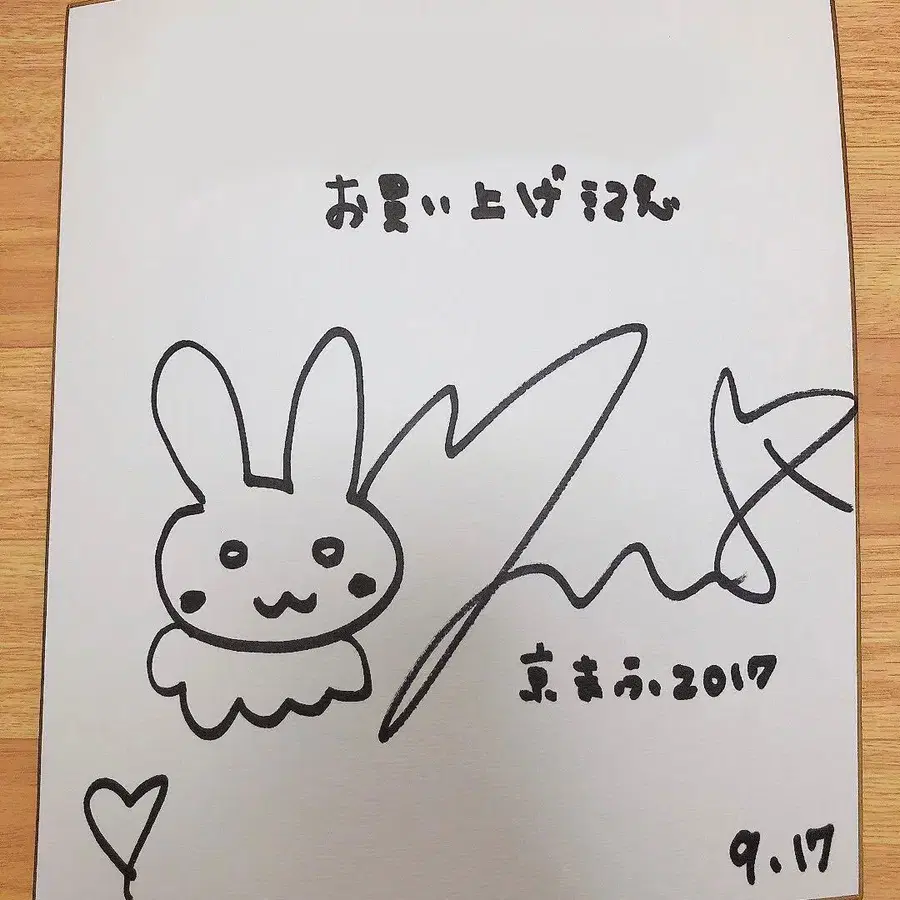 お買い上げ記念
京まふ.2017
9.17